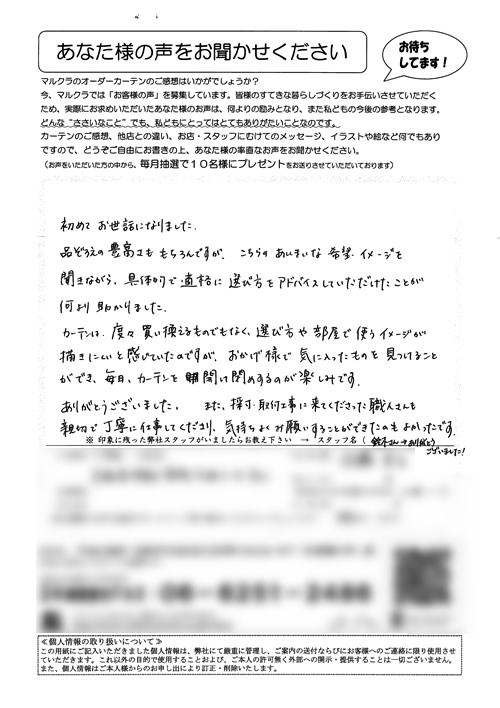 あなた様の声をお聞かせください
お待ち
してます！
マルクラのオーダーカーテンのご感想はいかがでしょうか？
今、マルクラでは「お客様の声」を募集しています。皆様のすてきな暮らしづくりをお手伝いさせていただく
ため、実際にお求めいただいたあなた様のお声は、何よりの励みとなり、また私どもの今後の参考となります。
どんな“ささいなこと”でも、私どもにとってはとてもありがたいことなのです。
カーテンのご感想、他店との違い、お店・スタッフにむけてのメッセージ、イラストや絵など何でもあり
ですので、どうぞご自由にお書きの上、あなた様の率直なお声をお聞かせください。
（お声をいただいた方の中から、毎月抽選で１０名様にプレゼントをお送りさせていただいております）
初めて お世話になりました.
品ぞろえの 豊富さも もちろんですが、こちらの あいまいな 希望. イメージを
聞きながら、具体的で 適格に 選び方を アドバイスしていただけたことが
何より 助かりました.
カーテンは、度々 買い換えるものでもなく、選び方や 部屋で 使うイメージが
描きにくいと 感じていたのですが、おかげ様で 気に入ったものを 見つけること
ができ、毎日、カーテンを 開け閉めするのが 楽しみです.
ありがとうございました。 また、採寸・取付工事に 来てくださった 職人さんも
親切で 丁寧に 仕事してくださり、気持ちよく お願いすることができたのも よかったです.
※ 印象に残った弊社スタッフがいましたらお教え下さい → スタッフ名（ 鈴木さん→ありがとう
ございました！
06-6251-2486
≪個人情報の取り扱いについて≫
この用紙にご記入いただきました個人情報は、弊社にて厳重に管理し、ご案内の送付ならびにお客様へのご連絡に限り使用させ
ていただきます。これ以外の目的で使用することおよび、ご本人の許可無く外部への開示・提供することは一切ございません。
また、個人情報はご本人様からのお申し出により訂正・削除いたします。